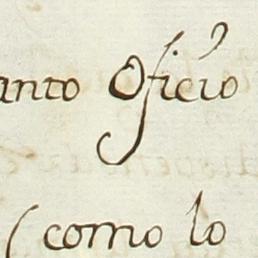 anto Oficio
(como lo